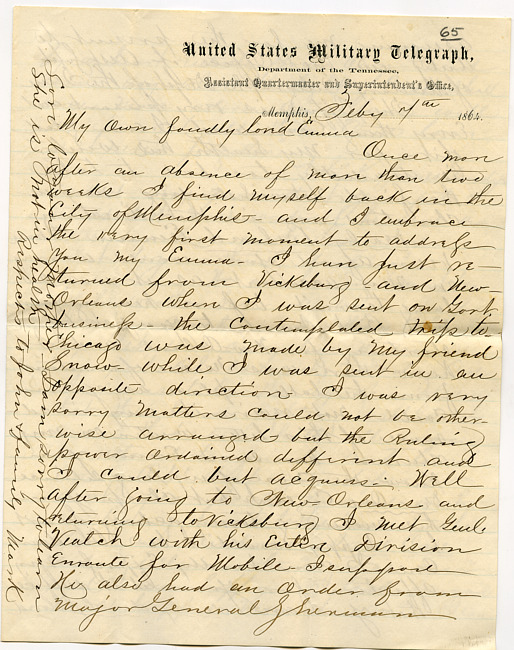 65
United States Military Telegraph,
Department of the Tennessee,
Assistant Quartermaster and Superintendent's Office,
Memphis, Feby 7th 1864.
My Own fondly loved Emma
Once more
after an absence of more than two
weeks I find myself back in the
City of Memphis - and I embrace
the very first moment to address
you my Emma - I have just re
turned from Vicksburg and New-
Orleans where I was sent on Govt
business - the contemplated trip to
Chicago was made by my friend
Snow - while I was sent in an
opposite direction I was very
sorry matters could not be other-
wise arranged but the Ruling
power ordained different and
I could but acquiess - Well
after going to New-Orleans and
returning to Vicksburg I met Genl.
Veatch with his Entire Division
Enroute for Mobile I suppose
He also had an Order from
Major General Sherman
She is not in health
Respects to John & family Mark